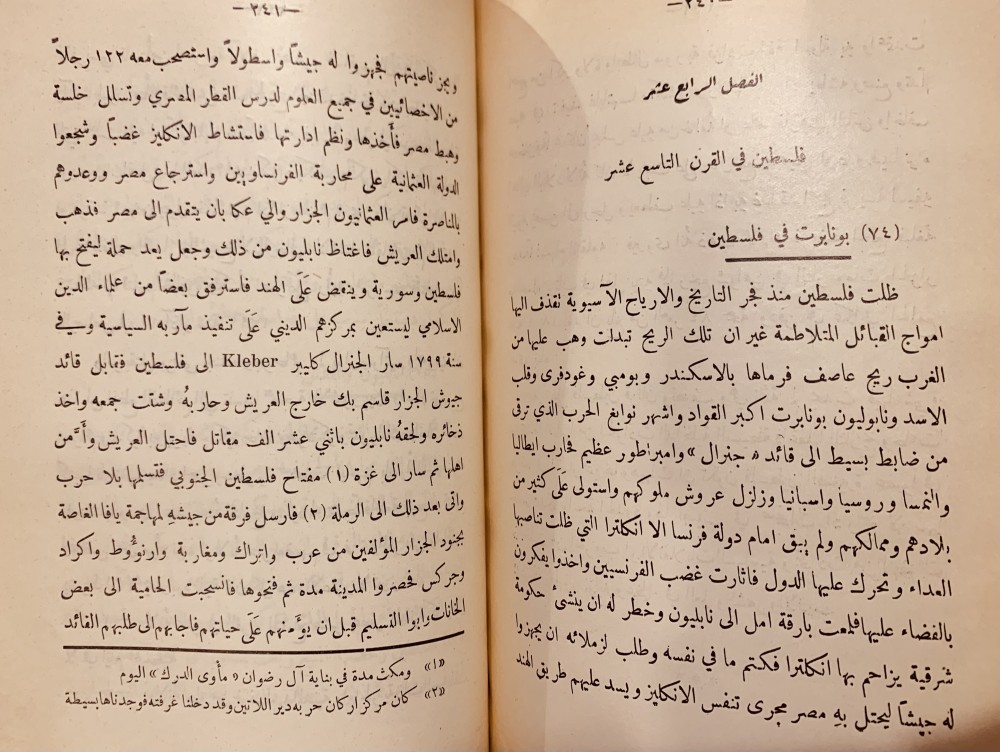 الفصل الرابع عشر
فلسطين في القرن التاسع عشر
(٧٤) بونابرت في فلسطين
ظلت فلسطين منذ فجر التاريخ والارياح الآسيوية تقذف اليها
امواج القبائل المتلاطمة غير ان تلك الريح تبدلت وهب عليها من
الغرب ريح عاصف فرماها بالاسكندر وبومبي وغودفرى وقلب
الاسد ونابوليون بونابرت اكبر القواد واشهر نوابغ الحرب الذي ترقى
من ضابط بسيط الى قائد « جنرال » وامبراطور عظيم فحارب ايطاليا
والنمسا وروسيا واسبانيا وزلزل عروش ملوكهم واستولى عَلَى كثير من
بلادهم وممالكهم ولم يبق امام دولة فرنسا الا انكلترا التي ظلت تناصبها
العداء وتحرك عليها الدول فاثارت غضب الفرنسيين واخذوا يفكرون
بالقضاء عليها فلمعت بارقة امل الى نابليون وخطر له ان ينشئ حكومة
شرقية يزاحم بها انكلترا فكتم ما في نفسه وطلب لزملائه ان يجهزوا
له جيشاً ليحتل بهِ مصر مجرى تنفس الانكليز ويسد عليهم طريق الهند
—٢٤١—
ويجز ناصيتهم فجهزوا له جيشاً واسطولاً واستصحب معه ١٢٢ رجلاً
من الاخصائيين في جميع العلوم لدرس القطر المصري وتسلل خلسة
وهبط مصر فأخذها ونظم ادارتها فاستشاط الانكليز غضباً وشجعوا
الدولة العثمانية على محاربة الفرنساويين واسترجاع مصر ووعدوهم
بالناصرة فامر العثمانيون الجزار والي عكا بان يتقدم الى مصر فذهب
وامتلك العريش فاغتاظ نابليون من ذلك وجعل يعد حملة ليفتح بها
فلسطين وسورية وينقض عَلَى الهند فاسترفق بعضاً من علماء الدين
الاسلامي ليستعين بمركزهم الديني عَلَى تنفيذ مآربه السياسية وفي
سنة ١٧٩٩ سار الجنرال كليبر Kleber الى فلسطين فتقابل قائد
جيوش الجزار قاسم بك خارج العريش وحاربهُ وشتت جمعه واخذ
ذخائره ولحقهُ نابليون باثني عشر الف مقاتل فاحتل العريش وأَمن
اهلها ثم سار الى غزة (١) مفتاح فلسطين الجنوبي فتسلمها بلا حرب
واتى بعد ذلك الى الرملة (٢) فارسل فرقة من جيشهِ لمهاجمة يافا الغاصة
بجنود الجزار المؤلفين من عرب واتراك ومغاربة وارنوؤط واكراد
وجركس فحصروا المدينة مدة ثم فتحوها فانسحبت الحامية الى بعض
الخانات وابوا التسليم قبل ان يؤمنهم عَلَى حياتهم فاجابهم الى طلبهم القائد
«١» ومكث مدة في بناية آل رضوان « مأوى الدرك » اليوم
«٢» كان مركز اركان حربه دير اللاتين وقد دخلنا غرفته فوجدناها بسيطة